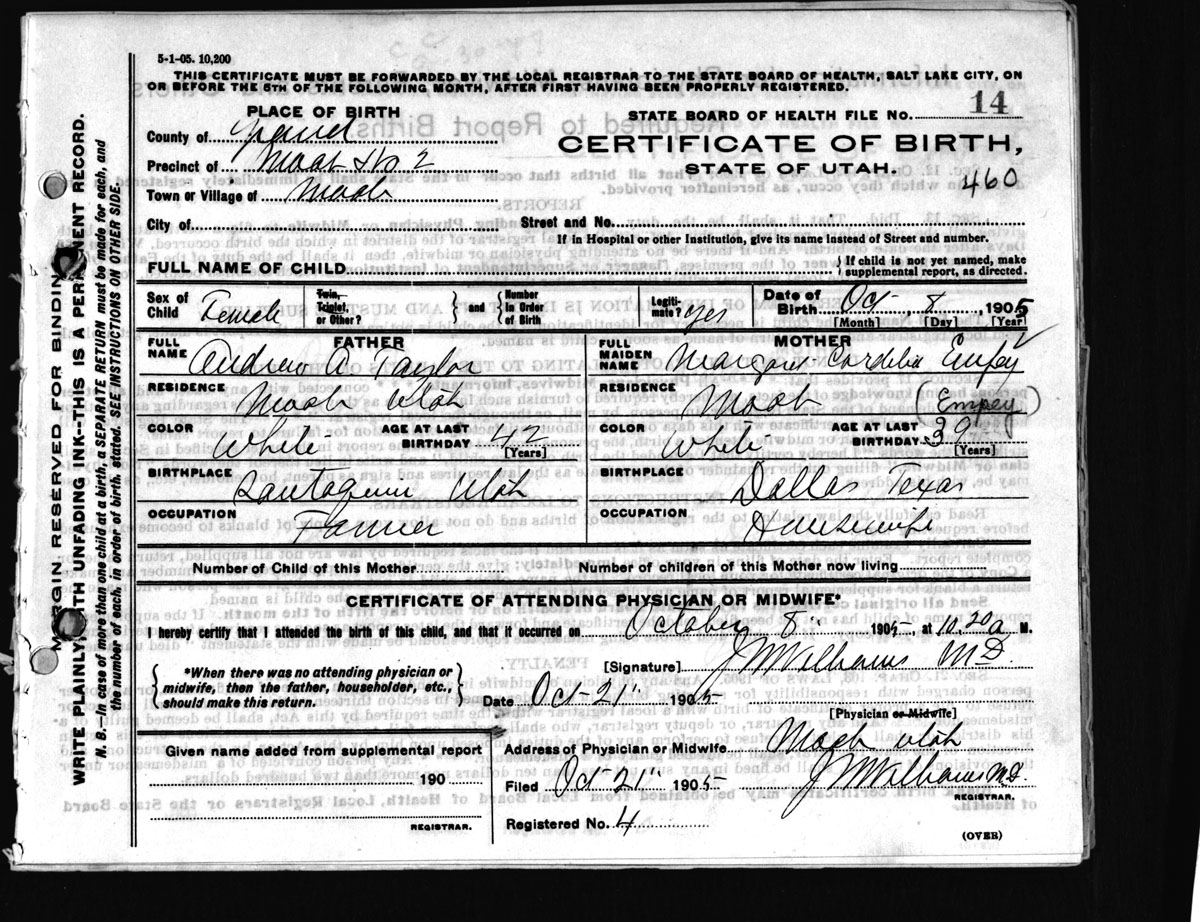 5-1-05. 10,200
THIS CERTIFICATE MUST BE FORWARDED BY THE LOCAL REGISTRAR TO THE STATE BOARD OF HEALTH, SALT LAKE CITY, ON
OR BEFORE THE 5TH OF THE FOLLOWING MONTH, AFTER FIRST HAVING BEEN PROPERLY REGISTERED.
PLACE OF BIRTH
County of Grand
Precinct of Moab No 2
Town or Village of Moab
City of
STATE BOARD OF HEALTH FILE No. 14
CERTIFICATE OF BIRTH,
STATE OF UTAH.
460
Street and No.
If in Hospital or other Institution, give its name instead of Street and number.
FULL NAME OF CHILD
} If child is not yet named, make
supplemental report, as directed.
Sex of Child Female
Twin, Triplet, or Other?
} and {
Number in Order of Birth
Legiti-mate? Yes
Date of Birth Oct 8 1905
[Month] [Day] [Year]
FATHER
FULL NAME Andrew A Taylor
RESIDENCE
Moab Utah
COLOR White
AGE AT LAST BIRTHDAY 42
[Years]
BIRTHPLACE
Santaquin Utah
OCCUPATION
Farmer
MOTHER
FULL MAIDEN NAME Margaret Cordelia Empey
RESIDENCE
Moab (Empey)
COLOR White
AGE AT LAST BIRTHDAY 39
[Years]
BIRTHPLACE
Dallas Texas
OCCUPATION
Housewife
Number of Child of this Mother
Number of children of this Mother now living
CERTIFICATE OF ATTENDING PHYSICIAN OR MIDWIFE*
I hereby certify that I attended the birth of this child, and that it occurred on October 8 1905, at 10.20 a M.
*When there was no attending physician or
midwife, then the father, householder, etc.,
should make this return.
[Signature] J W Williams M D.
Date Oct 21" 1905
[Physician or Midwife]
Given name added from supplemental report
190
REGISTRAR.
Address of Physician or Midwife Moab Utah
Filed Oct 21" 1905 J W Williams M D.
REGISTRAR.
Registered No. 4
(OVER)
MARGIN RESERVED FOR BINDING
WRITE PLAINLY WITH UNFADING INK--THIS IS A PERMANENT RECORD.
N. B.--In case of more than one child at a birth, a SEPARATE RETURN must be made for each, and
the number of each, in order of birth, stated. SEE INSTRUCTIONS ON OTHER SIDE.